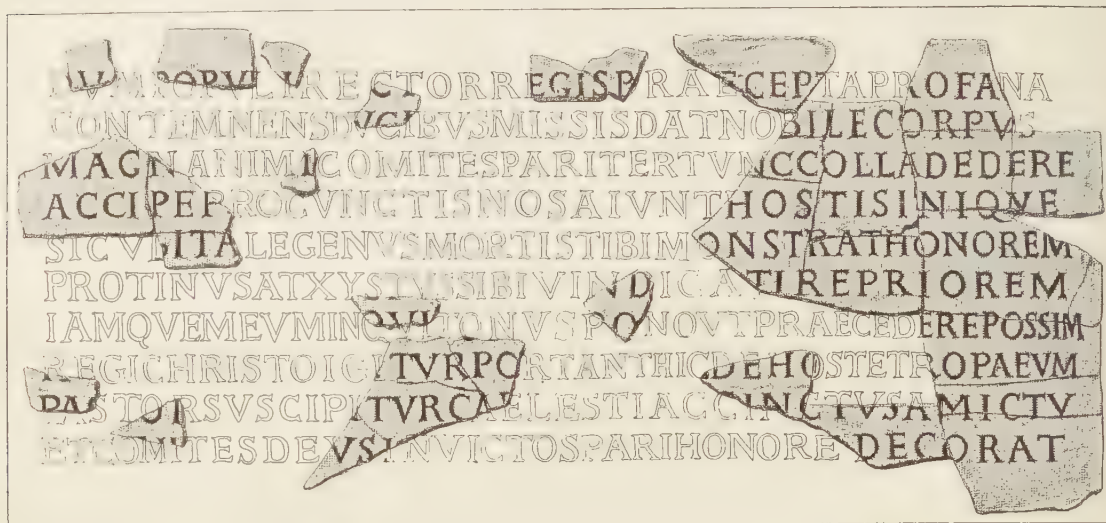 DVMPOPVLIRECTORREGISPRAECEPTAPROFANA
CONTEMNENSDVCIBVSMISSISDATNOBILECORPVS
MAGNANIMICOMITESPARITERTVNCCOLLADEDERE
ACCIPEPROCVNCTISNOSAIVNTHOSTISINIQVE
SICVBITALEGENVSMORTISTIBIMONSTRATHONOREM
PROTINVSATXYSTVSSIBIVINDICATIREPRIOREM
IAMQVEMEVMINQVITONVSPONOVTPRAECEDEREPOSSIM
REGICHRISTOIGITVRPORTANTHICDEHOSTETROPAEVM
PASTORSVSCIPITVRCAELESTIACCINCTVSAMICTV
ETCOMITESDEVSINVICTOSPARIHONOREDECORAT